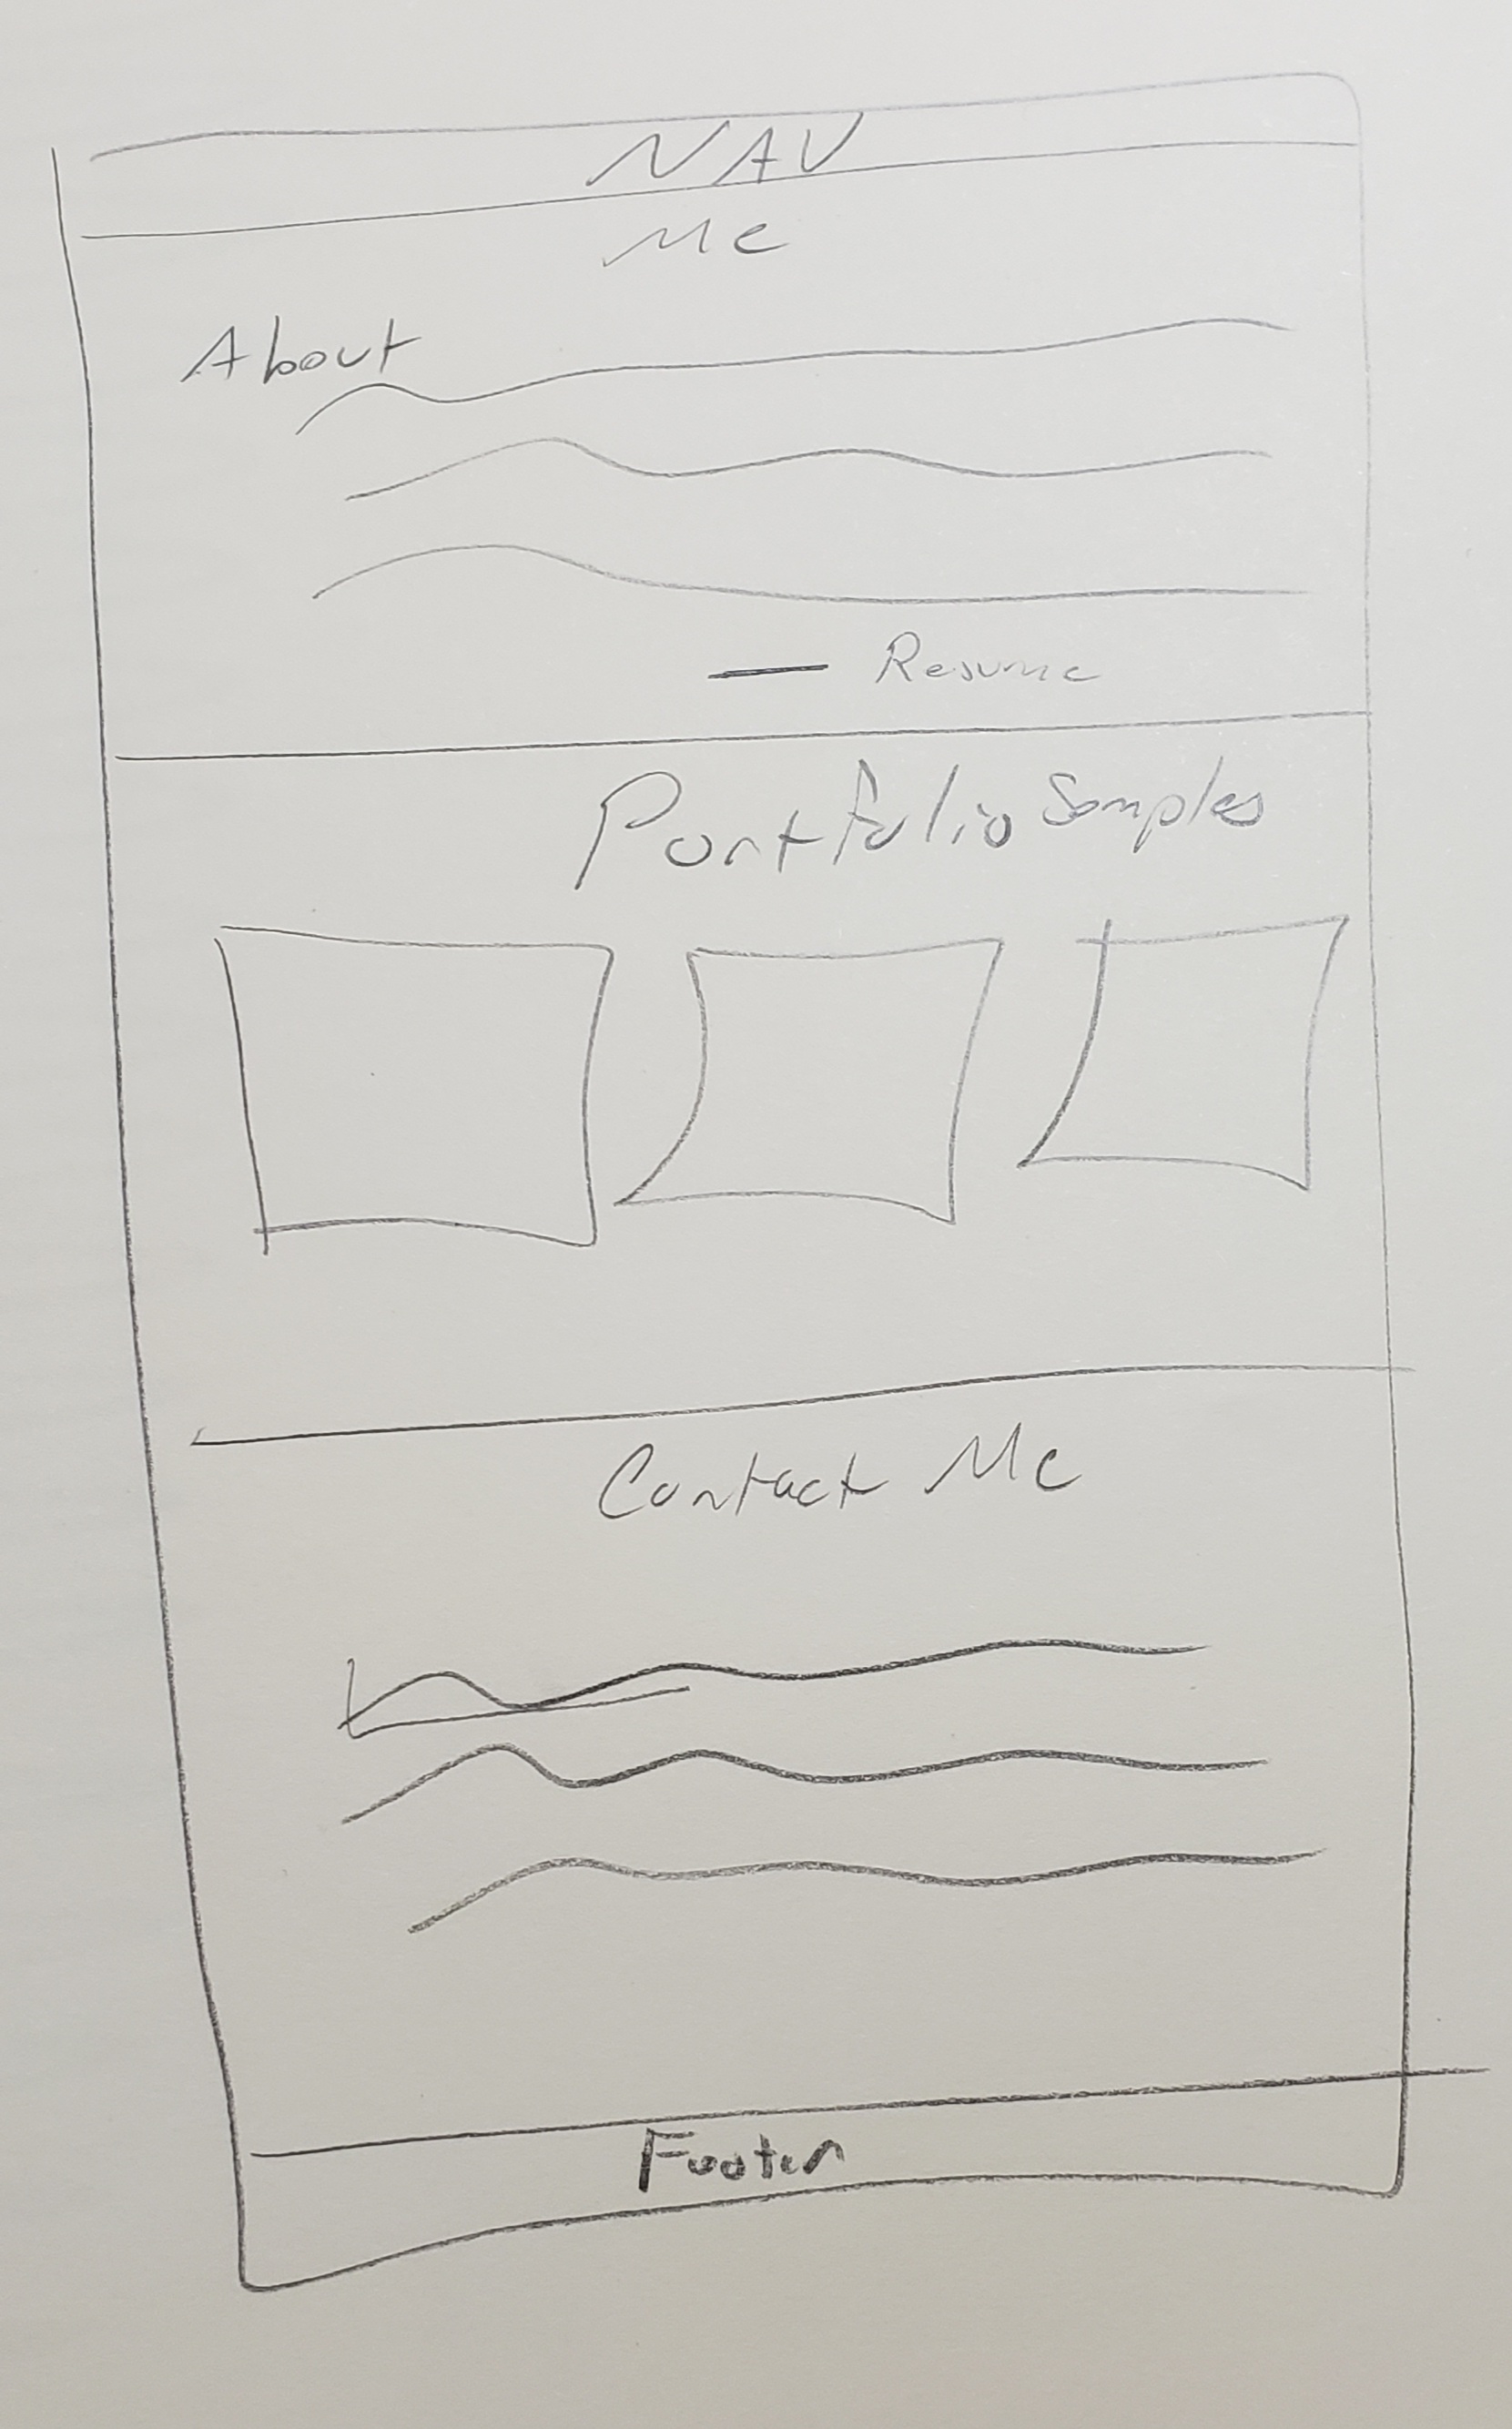 NAV
Me
About
— Resume
Portfolio Samples
Contact Me
Footer